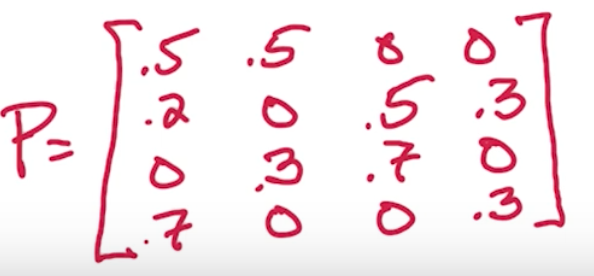 .5 .5 0 0
P= .2 0 .5 .3
0 .3 .7 0
.7 0 0 .3